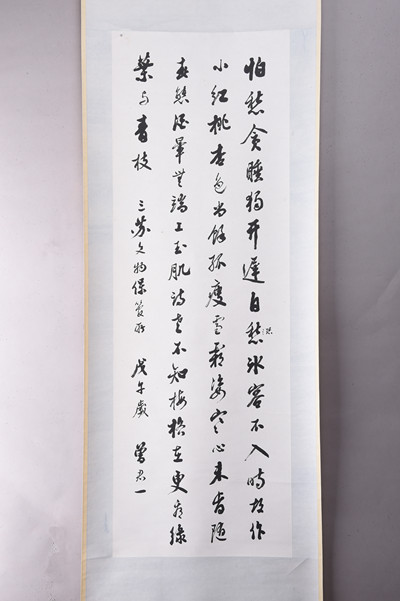 怕愁貪睡獨开遲自愁恐冰容不入時故作
小紅桃杏色尚餘孤瘦雪霜姿寒心未肯隨
春態酒暈無端上玉肌詩老不知梅格在更看綠
葉与青枝 三蘇文物保管所 戊午歲 曾君一